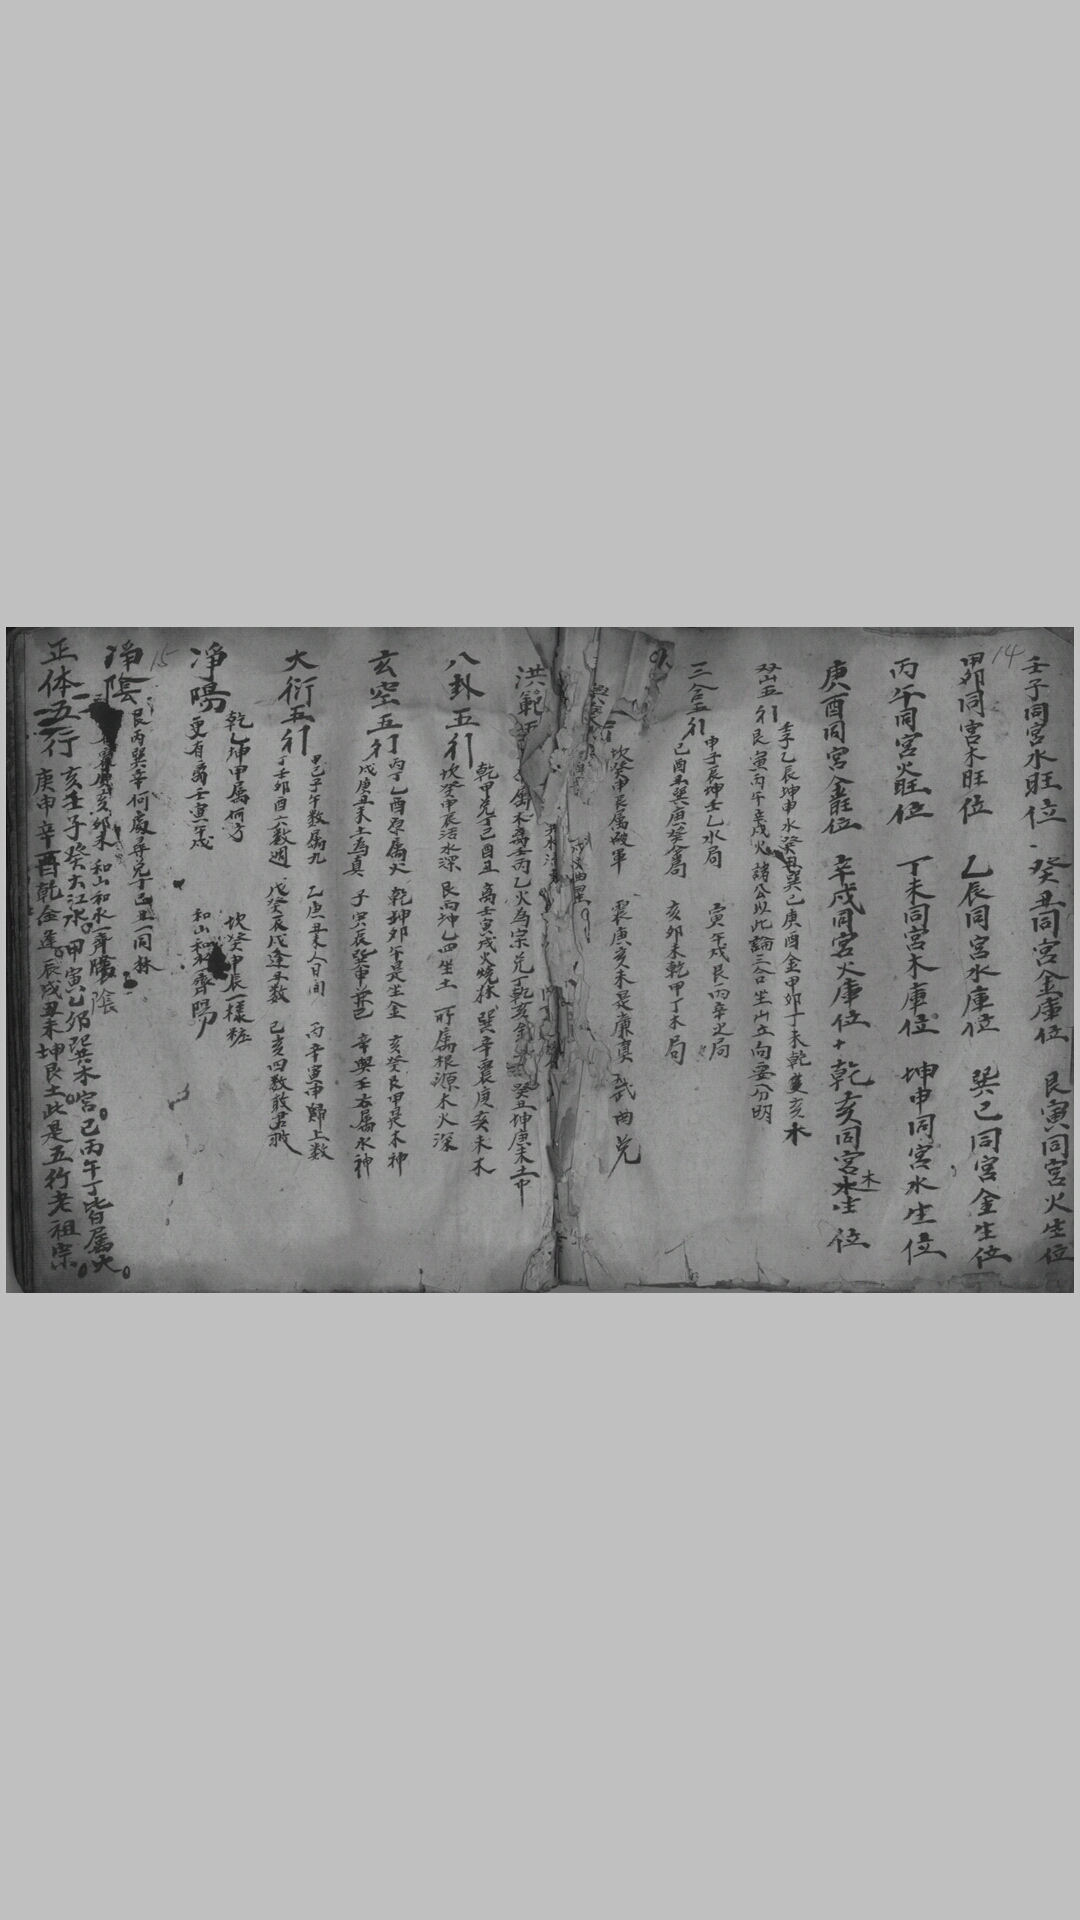 14
壬子同宮水旺位 癸丑同宮金庫位 艮寅同宮火生位
甲卯同宮木旺位 乙辰同宮水庫位 巽己同宮金生位
丙午同宮火旺位 丁未同宮木庫位 坤申同宮水生位
庚酉同宮金旺位 辛戌同宮火庫位 乾亥同宮木生位
双山五行
壬子乙辰坤申水 癸丑巽己庚酉金 甲卯丁未乾蒹亥木
艮寅丙午辛戌火 諸公以此論三合 坐山立向要分明
三合五行
申子辰坤壬乙水局 寅午戌艮丙辛火局
己酉丑巽庚癸金局 亥卯未乾甲丁木局
坎癸申辰属破軍 震庚亥未是廉貞 武曲兑
洪範
属木 离壬丙乙火為宗 兑丁乾亥金 癸丑坤庚未土中
八卦五行
乾甲兑丁己酉丑 离壬寅戌火燒株 巽辛震庚亥未木
坎癸申辰活水深 艮丙坤乙四坐土 所属根源木火深
玄空五行
丙丁乙酉原属火 乾坤卯午是生金 亥癸艮甲是木神
戌庚丑未土為真 子寅辰巽申 辛與壬方属水神
大衍五行
甲己子午数属九 乙庚丑未八日間 丙辛寅申歸七数
丁壬卯酉六数週 戊癸辰戌逢五数 己亥四数
淨陽
乾乙坤甲属何方 坎癸申辰一樣粧
更有离壬寅午戌 和山和水齊陽
15
淨陰
艮丙巽辛何處尋 兑丁己丑一同林
震庚亥卯未 和山和水一弄牒陰
正体五行
亥壬子癸大江水 甲寅乙卯巽木宮 己丙午丁皆属火
庚申辛酉乾金逢 辰戌丑未坤艮土 此是五行老祖宗